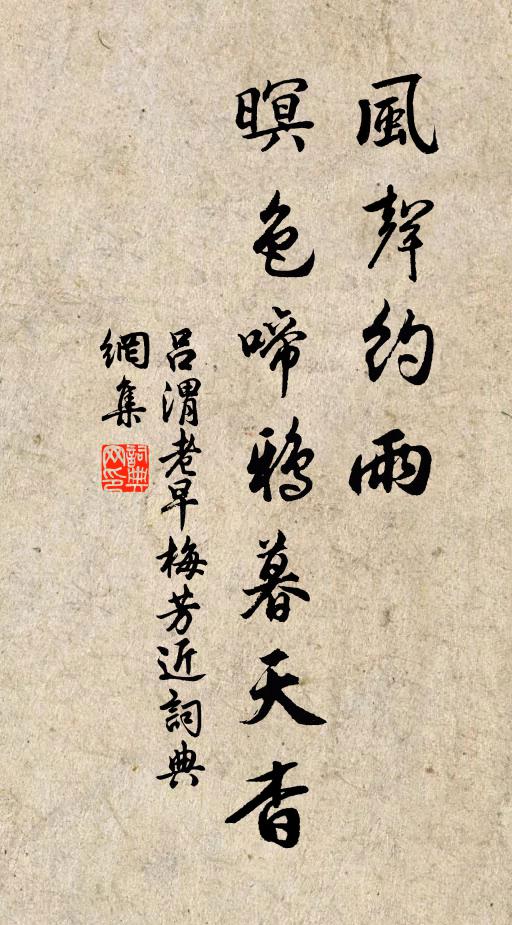 風聲約雨
暝色啼鴉暮天杳
呂渭老早梅芳近詞典
網集
詞典網印